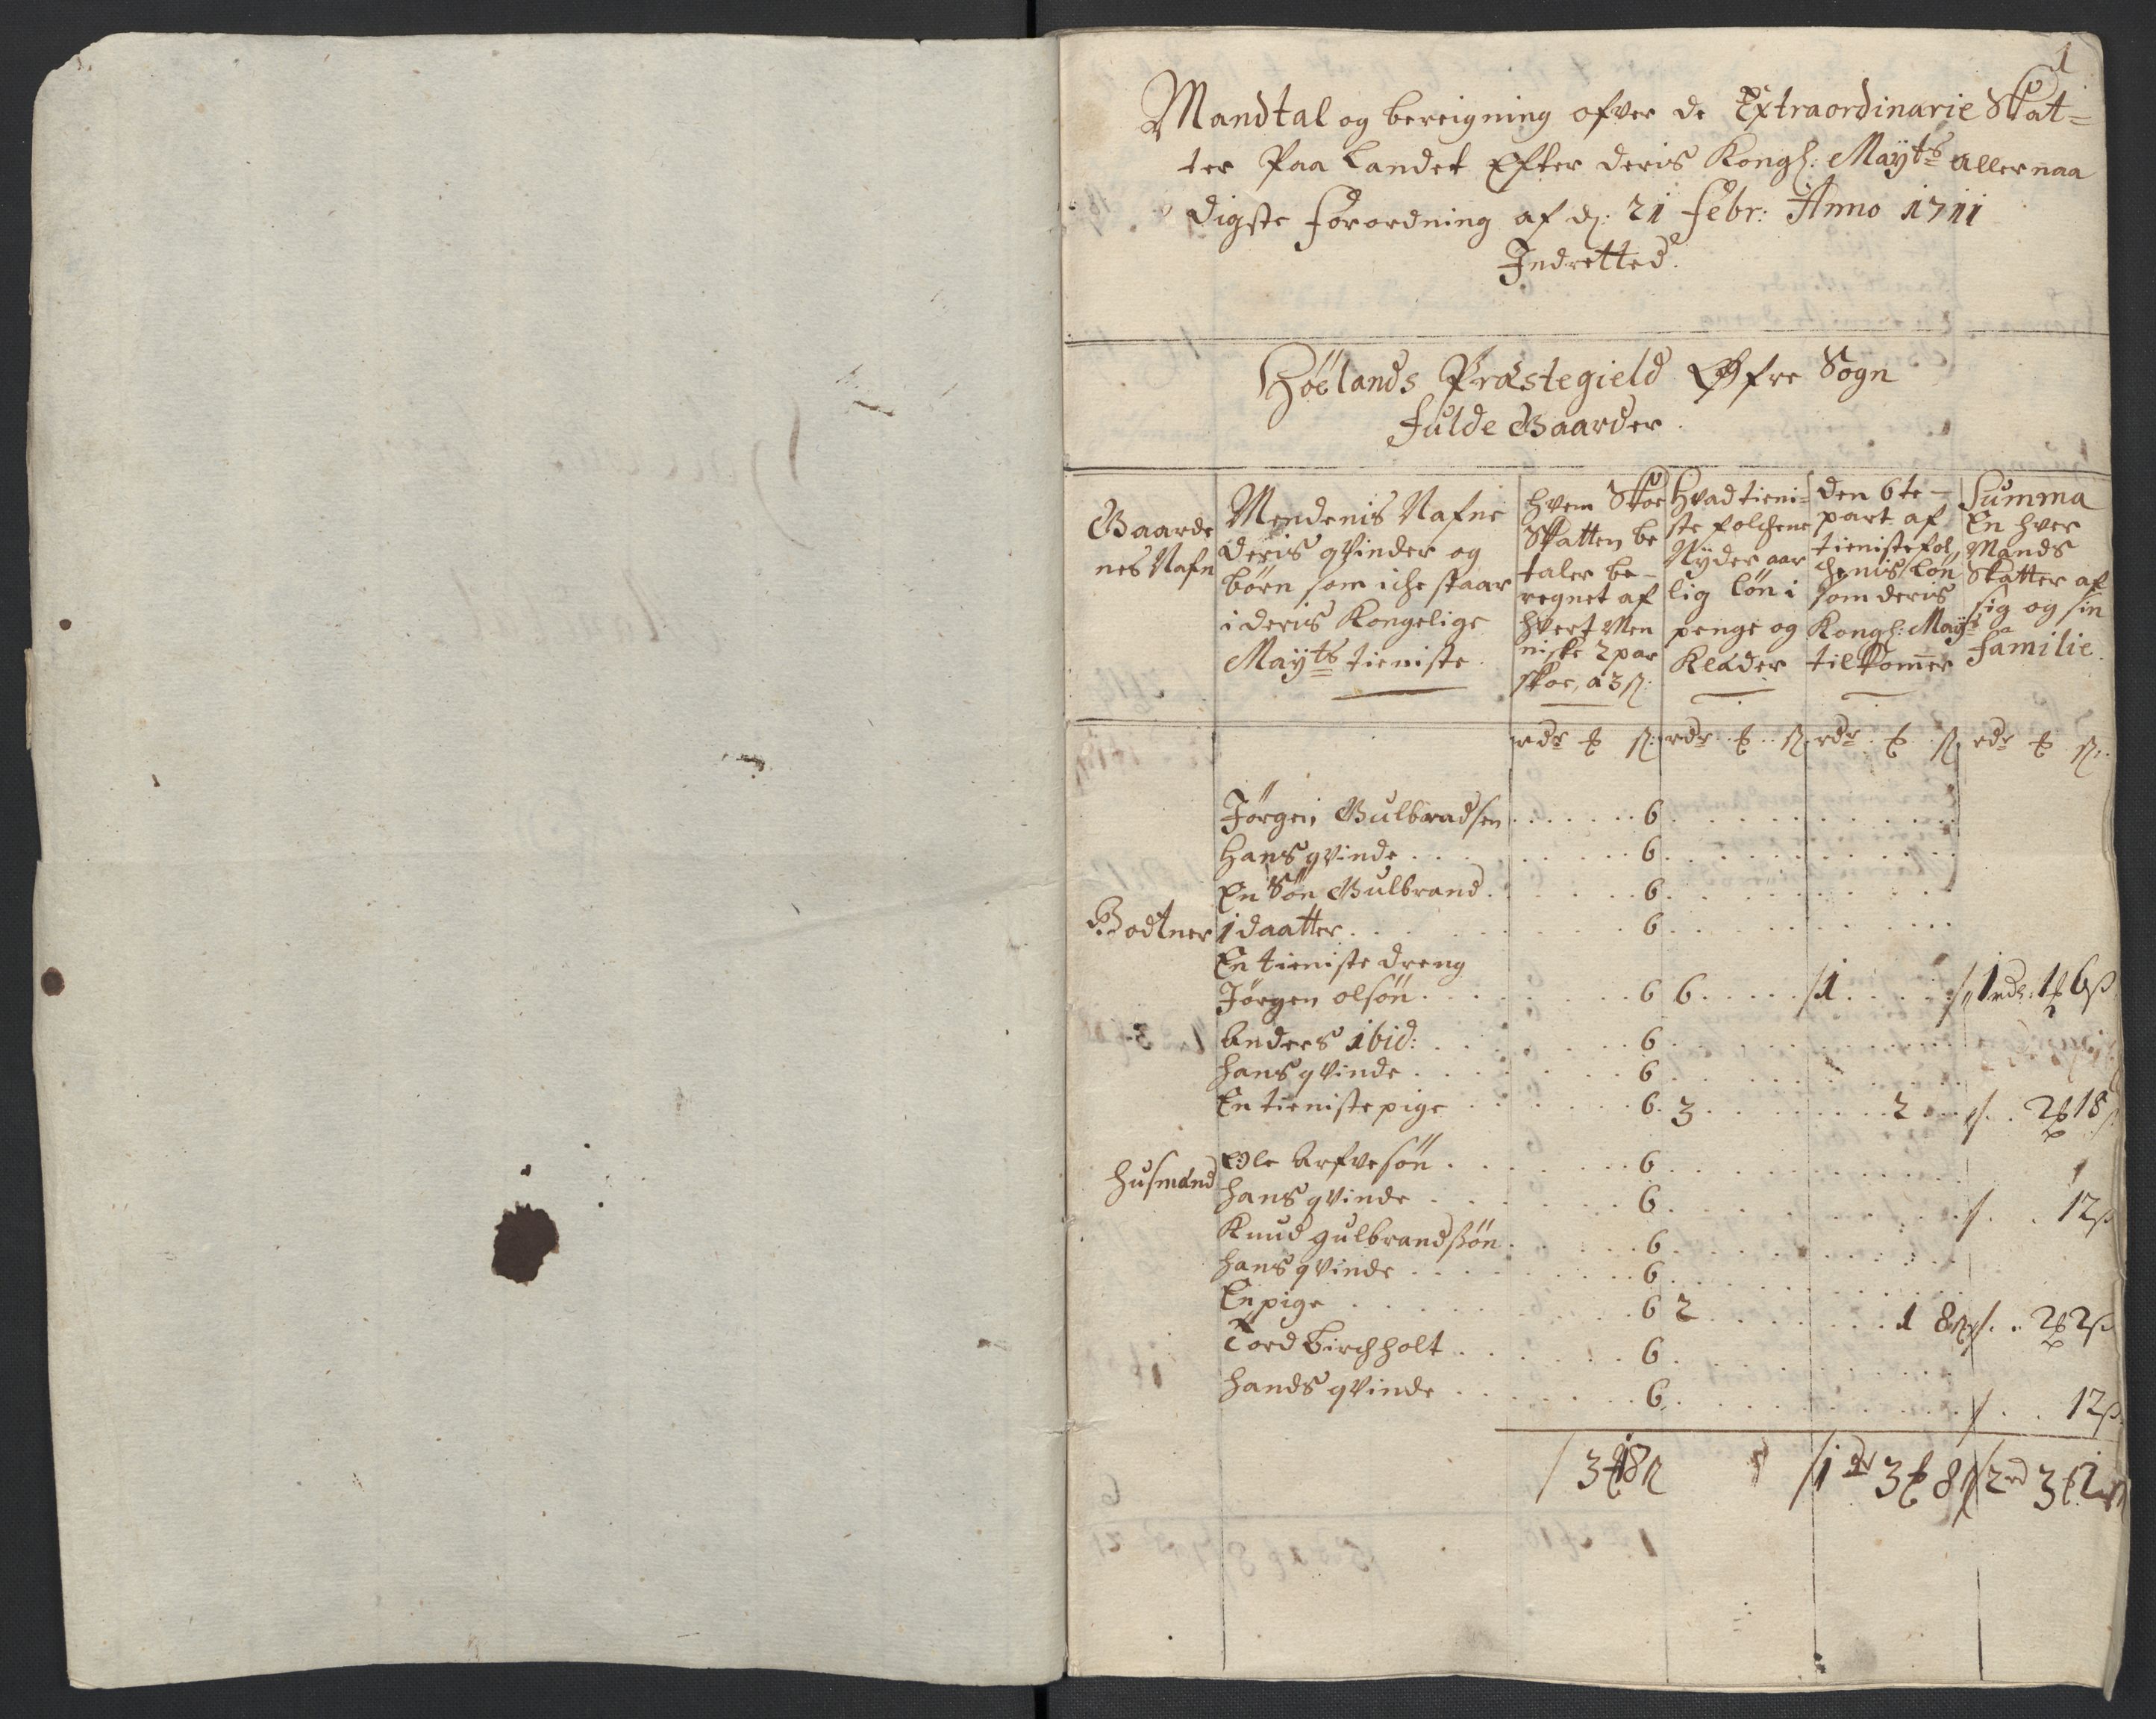 1
Mandtal og bereigning ofver de Extraordinarie Skat=
ter Paa Landet Efter deris Kongl: Mayts allernaa
digste forordning af d: 21 febr: Anno 1711
Indretted.
Höelands Præstegield Øfre Sogn
Fulde Gaarder.
Gaarde
nes Nafn
Mendenis Nafne
deris qvinder og
börn som iche staar
i deris Kongelige
Mayts tieniste.
hvem Skoe
Skatten be
taler be-
regnet af
hvert Men
niske 2 par
skoe, a 3 ß:
Hvad tieni=
ste folchene
Nyder aar
lig lön i
penge og
Klæder
den 6te-
part af
tienistefol,,
chenis lön
som deris
Kongl: Mayts
tilkommer
Summa
En hver
Mands
Skatter af
sig og sin
familie.
rdr ß rdr ß rdr ß rdr ß
Jörgen Gulbradsen 6
Hans qvinde 6
En Sön Gulbrand 6
Bodtner 1 daatter 6
En tieniste dreng
Jörgen olsön 6 6 1 1 rdr: 1 6 ß
Anders ibid: 6
hans qvinde 6
En tieniste pige 6 3 2 2 18 ß
Husmænd Ole Arfvesön 6
hans qvinde 6 12 ß
Knud gulbrandßön 6
hans qvinde 6
En pige 6 2 1 8 2 2 ß
Tord Birchholt 6
hands qvinde 6 12 ß
3 18 ß 1 dr 3 8 ß 2 rd 3 2